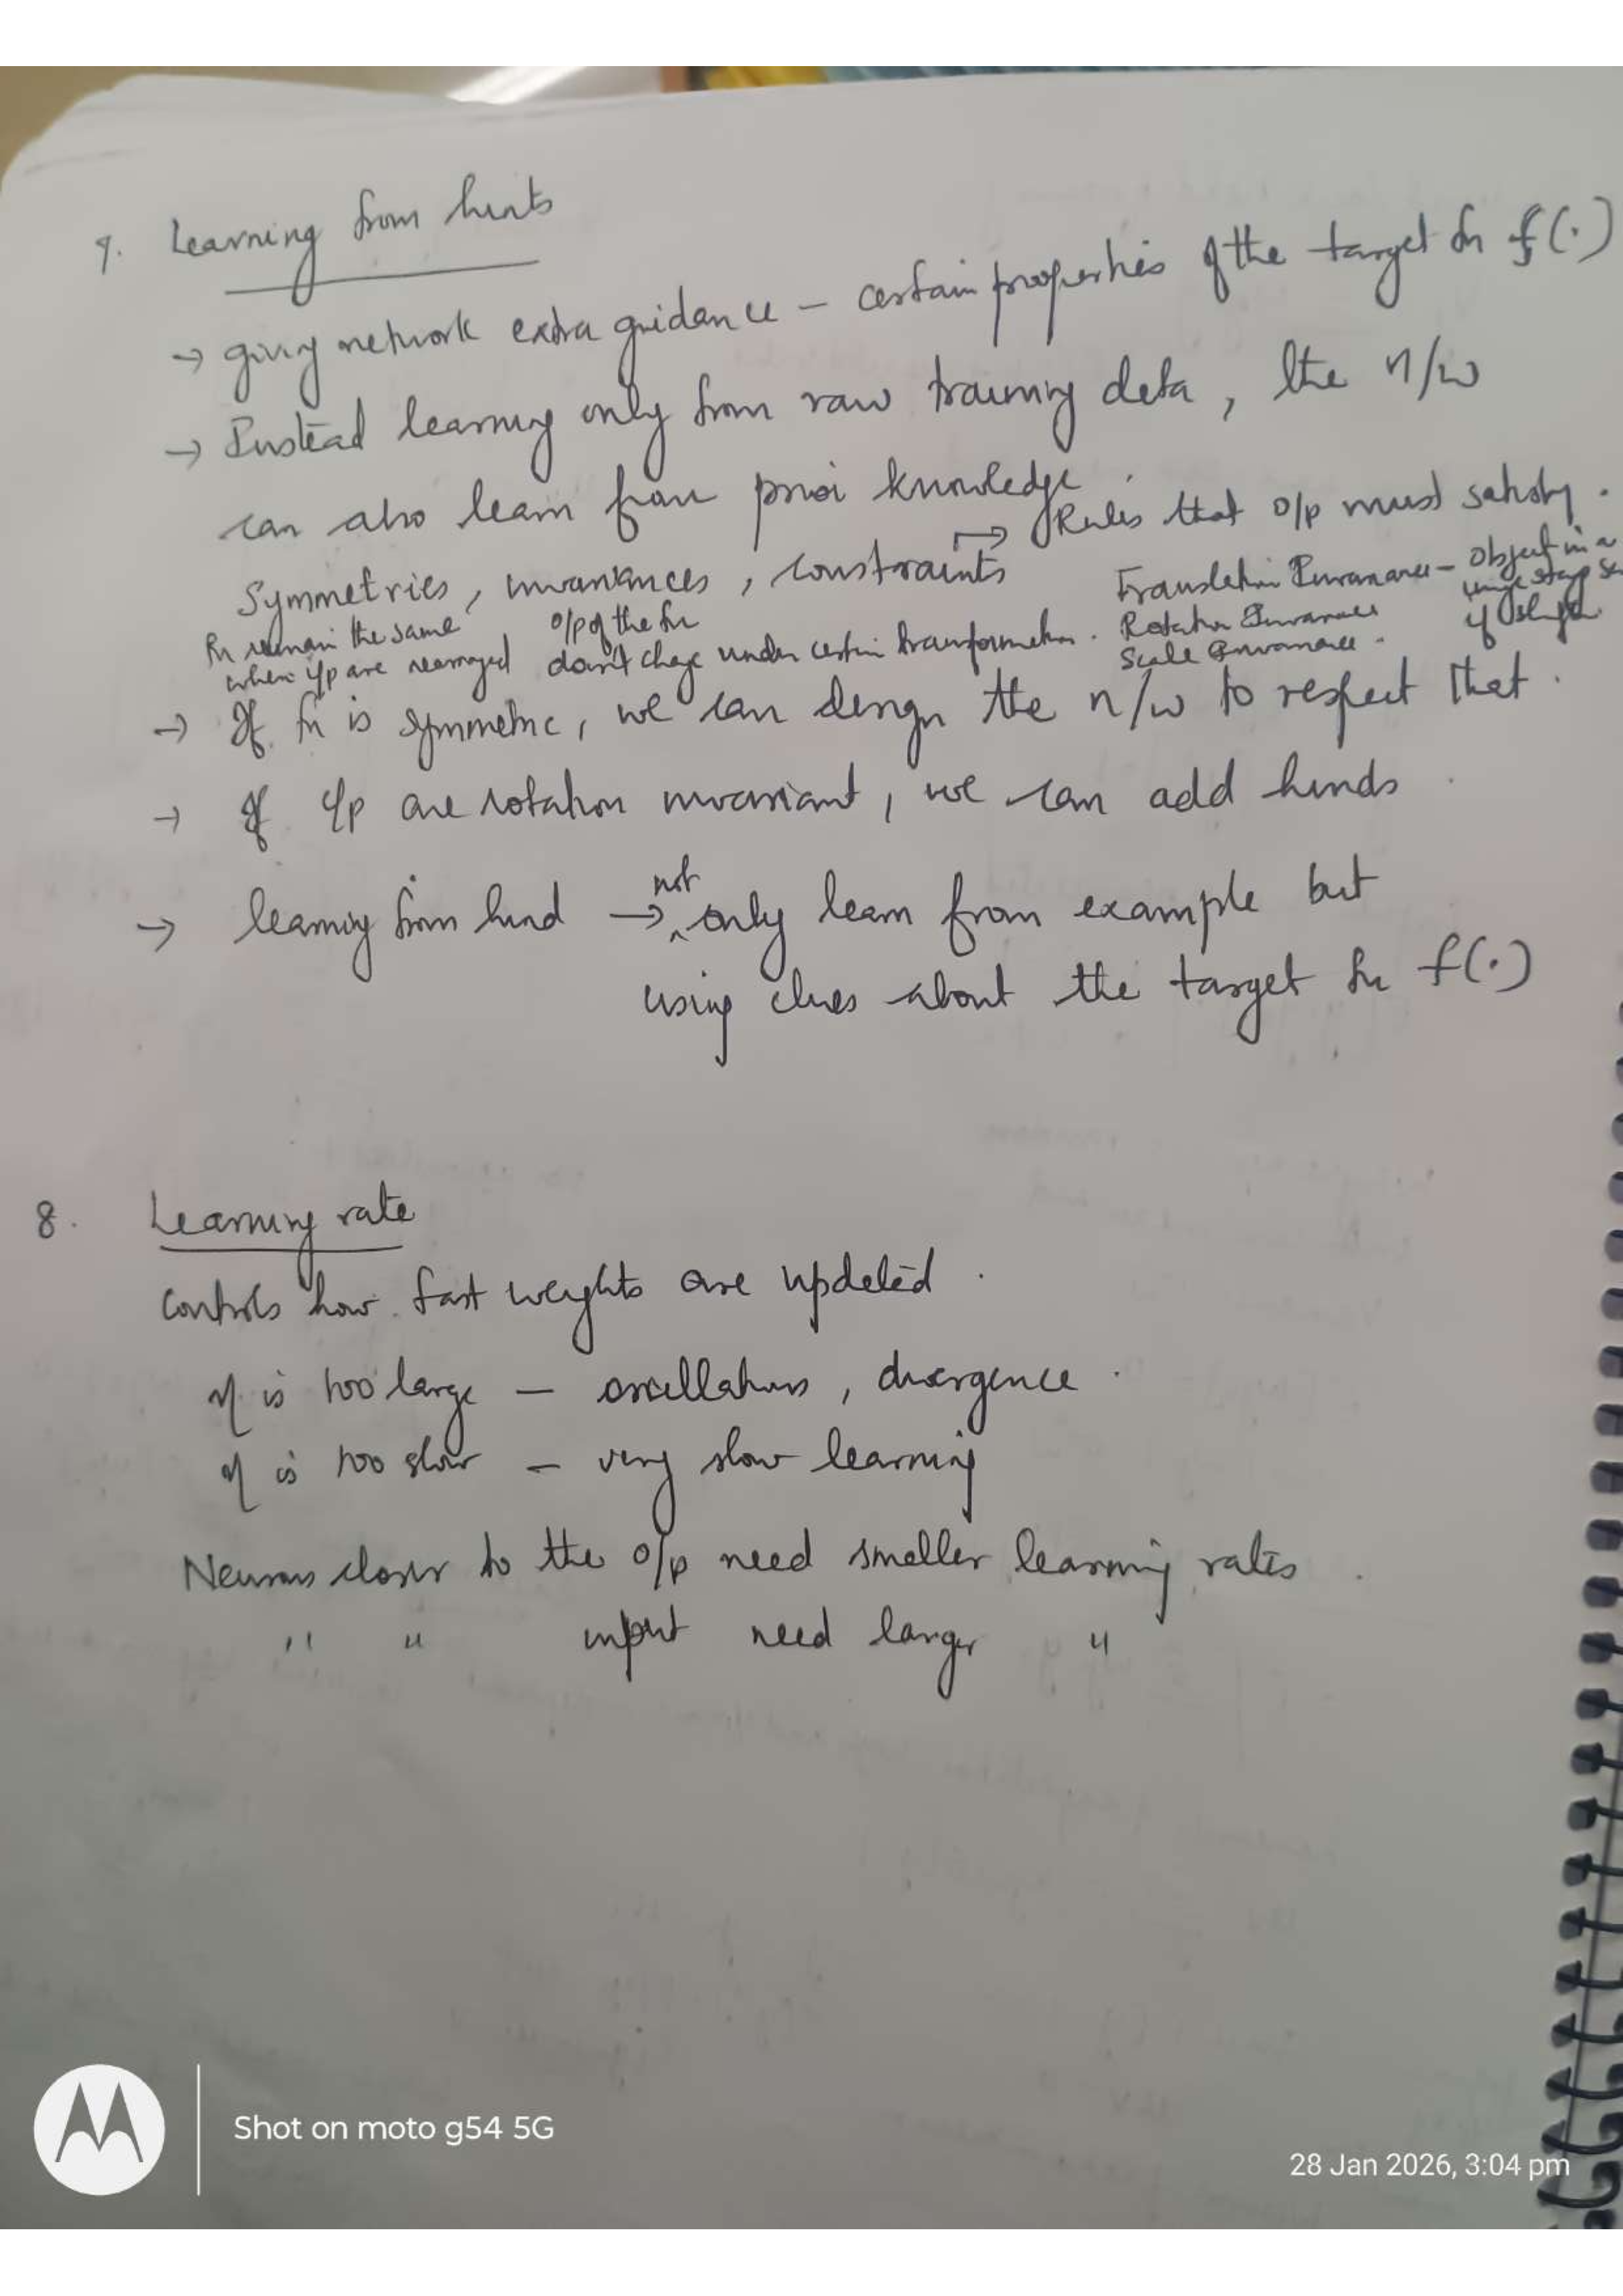 7. Learning from hints
→ giving network extra guidance – certain properties of the target fn f(.)
→ Instead learning only from raw training data, the n/w
can also learn from prior knowledge.
↦ Rules that o/p must satisfy.
Symmetries, invariances, constraints
fn remain the same when i/p are rearranged
o/p of the fn don't change under certain transformation.
Translation Invariance – object in a
Rotation Invariance
Scale Invariance.
→ If fn is symmetric, we can design the n/w to respect that.
→ If i/p are rotation invariant, we can add hinds
→ learning from hind → not only learn from example but
using clues about the target fn f(.)
8. Learning rate
controls how fast weights are updated.
η is too large – oscillations, divergence.
η is too slow – very slow learning
Neurons closer to the o/p need smaller learning rates.
" " input need larger "
Shot on moto g54 5G
28 Jan 2026, 3:04 pm